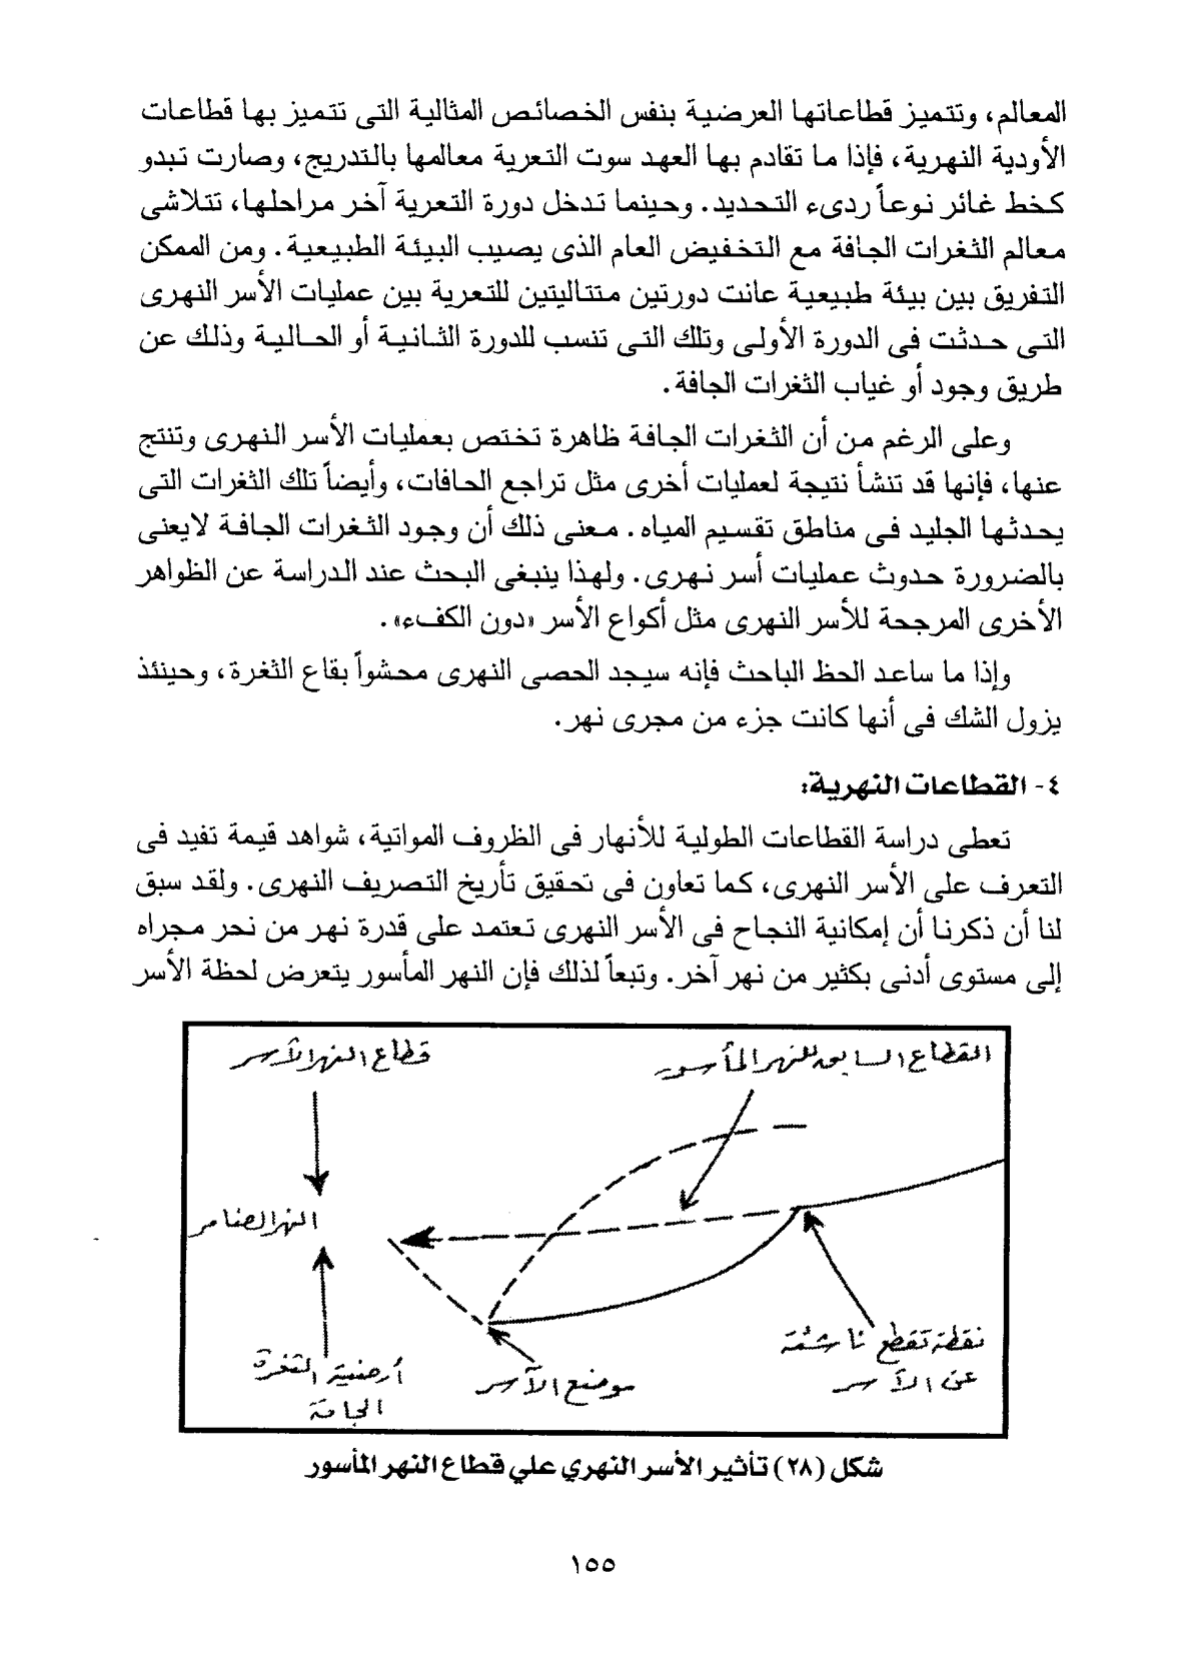 المعالم، وتتميز قطاعاتها العرضية بنفس الخصائص المثالية التى تتميز بها قطاعات
الأودية النهرية، فإذا ما تقادم بها العهد سوت التعرية معالمها بالتدريج، وصارت تبدو
كخط غائر نوعاً ردىء التحديد. وحينما تدخل دورة التعرية آخر مراحلها، تتلاشى
معالم الثغرات الجافة مع التخفيض العام الذى يصيب البيئة الطبيعية. ومن الممكن
التفريق بين بيئة طبيعية عانت دورتين متتاليتين للتعرية بين عمليات الأسر النهرى
التى حدثت فى الدورة الأولى وتلك التى تنسب للدورة الثانية أو الحالية وذلك عن
طريق وجود أو غياب الثغرات الجافة.
وعلى الرغم من أن الثغرات الجافة ظاهرة تختص بعمليات الأسر النهرى وتنتج
عنها، فإنها قد تنشأ نتيجة لعمليات أخرى مثل تراجع الحافات، وأيضاً تلك الثغرات التى
يحدثها الجليد فى مناطق تقسيم المياه. معنى ذلك أن وجود الثغرات الجافة لايعنى
بالضرورة حدوث عمليات أسر نهرى. ولهذا ينبغى البحث عند الدراسة عن الظواهر
الأخرى المرجحة للأسر النهرى مثل أكواع الأسر «دون الكفء».
وإذا ما ساعد الحظ الباحث فإنه سيجد الحصى النهرى محشواً بقاع الثغرة، وحينئذ
يزول الشك فى أنها كانت جزء من مجرى نهر.
٤- القطاعات النهرية:
تعطى دراسة القطاعات الطولية للأنهار فى الظروف المواتية، شواهد قيمة تفيد فى
التعرف على الأسر النهرى، كما تعاون فى تحقيق تأريخ التصريف النهرى. ولقد سبق
لنا أن ذكرنا أن إمكانية النجاح فى الأسر النهرى تعتمد على قدرة نهر من نحر مجراه
إلى مستوى أدنى بكثير من نهر آخر. وتبعاً لذلك فإن النهر المأسور يتعرض لحظة الأسر
القطاع السابق للنهر المأسور
قطاع النهر الآسر
النهر الضامر
نقطة تقطع ناشئة
عن الآسر
موضع الآسر
أرضية الثغرة
الجافة
شكل (٢٨) تأثير الأسر النهري علي قطاع النهر المأسور
١٥٥